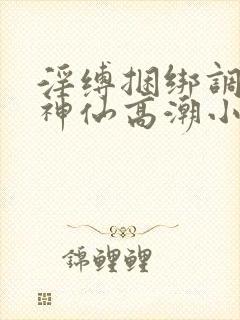 淫缚捆绑調
神仙高潮小
錦鲤鲤